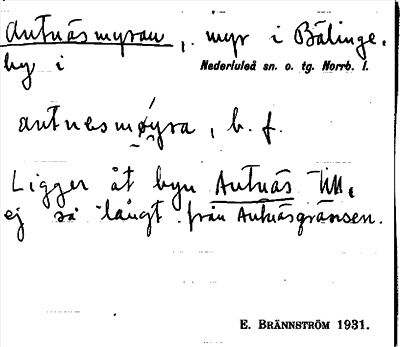 Antnäsmyran, myr i Bälinge.
by i Nederluleå sn. o. tg. Norrb. l.
antnesmøyra, b. f.
Ligger åt byn Antnäs till,
ej så långt från Antnäsgränsen.
E. BRÄNNSTRÖM 1931.